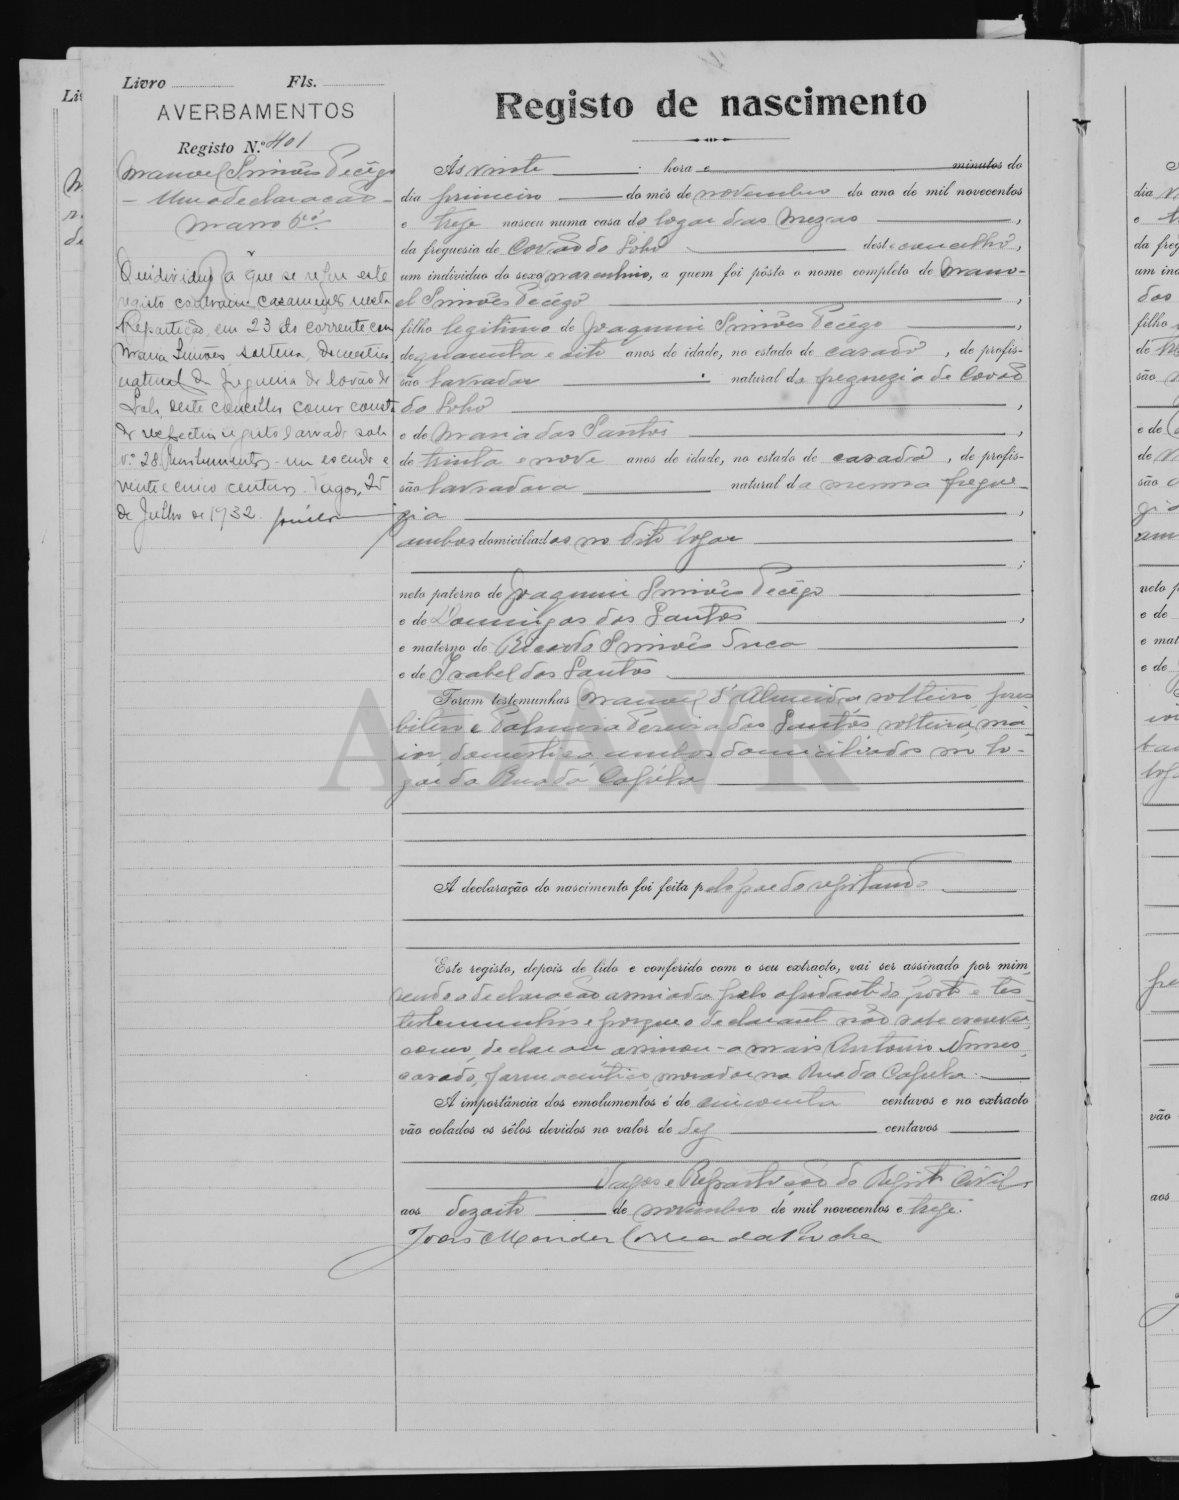 Livro Fls.
AVERBAMENTOS
Registo N.º 401
Manoel Simões Pecêgo
- Uma declaração -
maço 6º
O individuo a que se refere este
registo contraiu casamento nesta
Repartição, em 23 do corrente com
Maria Simões solteira, domestica,
natural da freguesia de Covão do
Lobo, deste concelho como consta
do respectivo registo lavrado sob
n.º 28. Emolumentos - um escudo e
vinte e cinco centavos. Vagos, 25
de Julho de 1932.
Registo de nascimento
Ás vinte hora e minutos do
dia primeiro do mês de novembro do ano de mil novecentos
e treze nasceu numa casa do logar das Mezas,
da freguesia de Covão do Lobo deste concelho,
um individuo do sexo masculino, a quem foi pôsto o nome completo de Mano-
el Simões Pecêgo,
filho legitimo de Joaquim Simões Pecêgo,
de quarenta e oito anos de idade, no estado de casado, de profis-
são lavrador natural da freguezia de Covão
do Lobo,
e de Maria dos Santos,
de trinta e nove anos de idade, no estado de casada, de profis-
são lavradora natural da mesma fregue-
zia,
ambos domiciliados no dito logar
neto paterno de Joaquim Simões Pecêgo
e de Domingas dos Santos,
e materno de Ricardo Simões
e de Isabel dos Santos
Foram testemunhas Manoel d'Almeida, solteiro, pres-
bitero e Palmira Pereira dos Santos, solteira, ma-
ior, domestica, ambos domiciliados no lo-
gar da Rua da Capéla
A declaração do nascimento foi feita pelo pae do registando
Este registo, depois de lido e conferido com o seu extracto, vai ser assinado por mim,
sendo a declaração assinada pelo ajudante do posto e tes-
testemunhas e porque o declarante não sabe escrever,
como declarou assinou-a mais Antonio Nunes,
casado, farmaceutico, morador na Rua da Capéla.
A importância dos emolumentos é de cincoenta centavos e no extracto
vão colados os sêlos devidos no valor de dez centavos
Vagos e Repartição do Registo Civil,
aos dezoito de novembro de mil novecentos e treze.
João Mendes Correia da Rocha
ADAVR